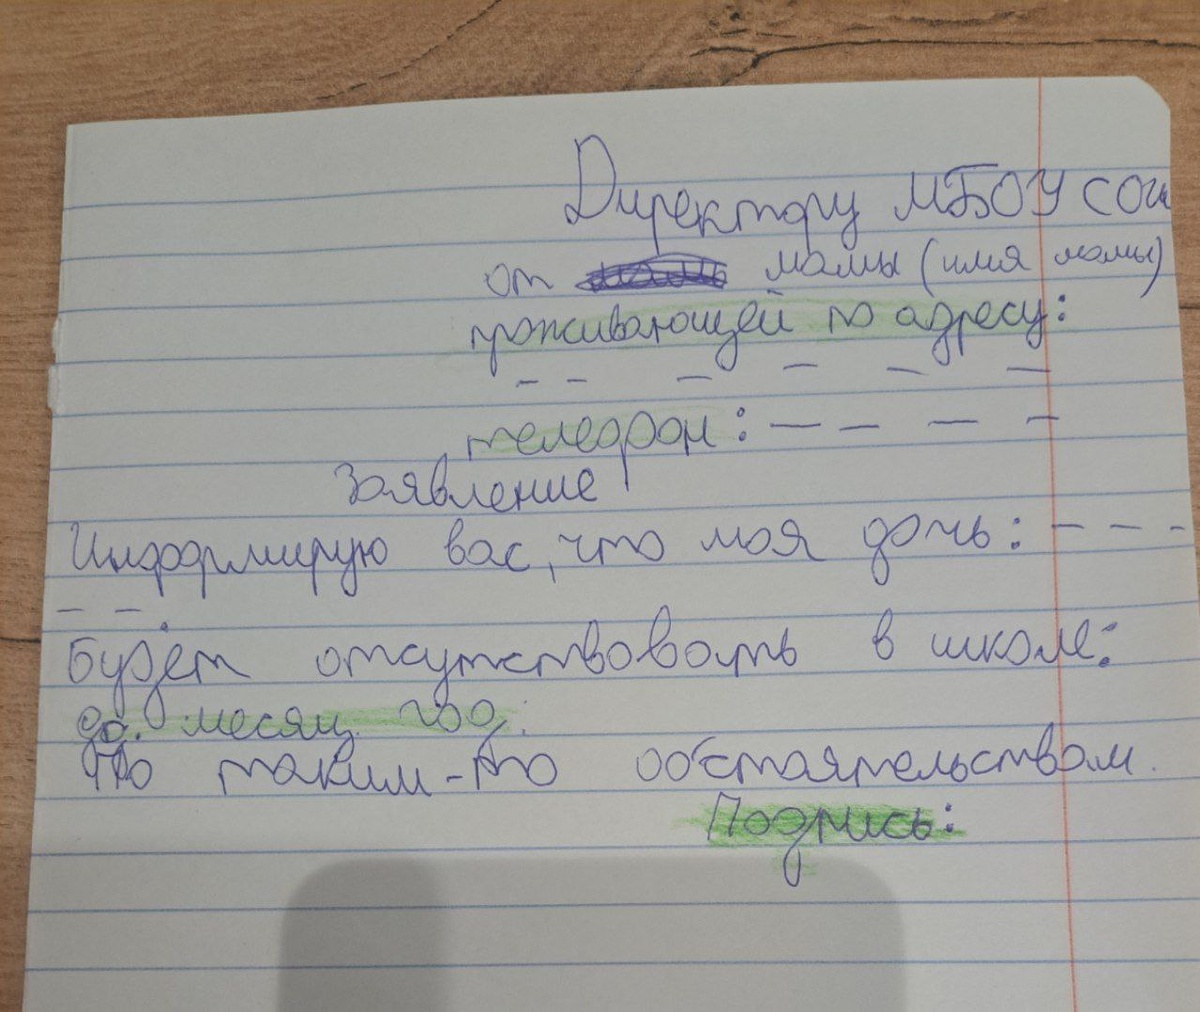 Директору МБОУ СОШ
от мамы (имя мамы)
проживающей по адресу:
– – – – – –
телефон: – – – –
Заявление
Информирую вас, что моя дочь: – – –
– – .
Будет отсутствовать в школе:
месяц год.
По таким-то обстоятельствам.
Подпись: